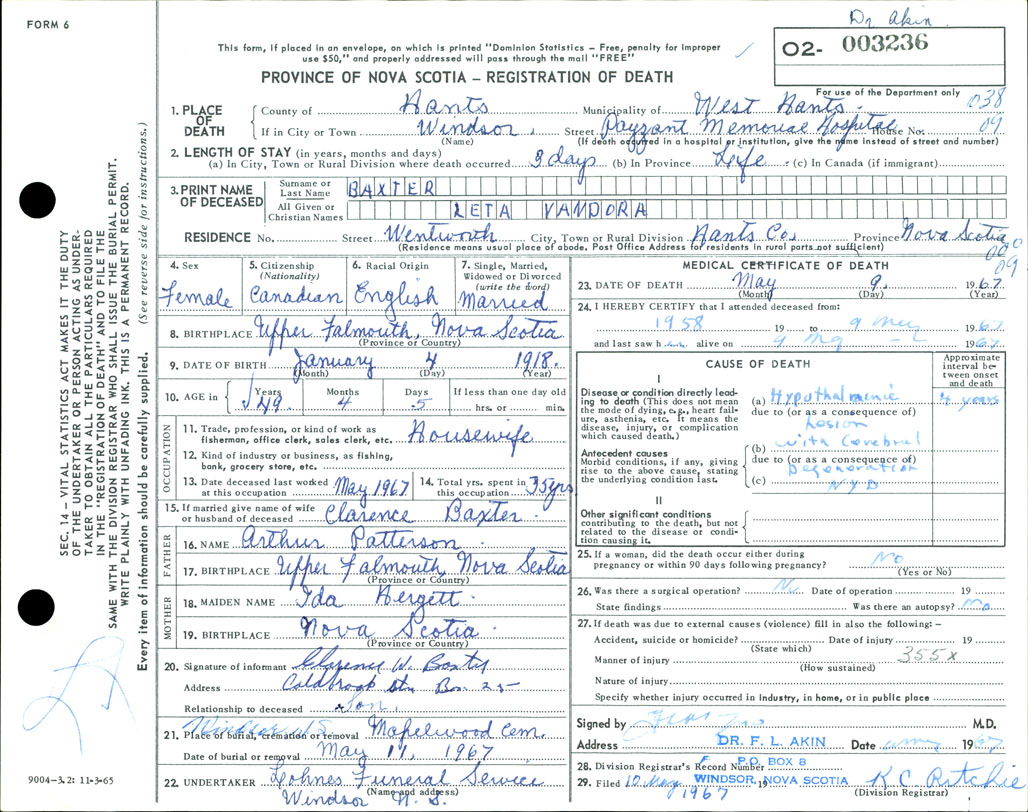 Dr. Akin.
FORM 6
02- 003236
This form, if placed in an envelope, on which is printed "Dominion Statistics – Free, penalty for improper
use $50," and properly addressed will pass through the mail "FREE"
PROVINCE OF NOVA SCOTIA – REGISTRATION OF DEATH
For use of the Department only
038
09
1. PLACE OF DEATH
County of Hants Municipality of West Hants.
If in City or Town Windsor, Street Payzant Memorial Hospital House No.
(Name) (If death occurred in a hospital or institution, give the name instead of street and number)
2. LENGTH OF STAY (in years, months and days)
(a) In City, Town or Rural Division where death occurred 3 days (b) In Province Life (c) In Canada (if immigrant)
3. PRINT NAME OF DECEASED
Surname or Last Name BAXTER
All Given or Christian Names LETA VANDORA
RESIDENCE No. Street Wentworth City, Town or Rural Division Hants Co. Province Nova Scotia
(Residence means usual place of abode. Post Office Address for residents in rural parts not sufficient)
09
4. Sex Female
5. Citizenship (Nationality) Canadian
6. Racial Origin English
7. Single, Married, Widowed or Divorced (write the word) Married
8. BIRTHPLACE Upper Falmouth, Nova Scotia
(Province or Country)
9. DATE OF BIRTH January 4 1918.
(Month) (Day) (Year)
10. AGE in Years 49 Months 4 Days 5 If less than one day old hrs. or min.
OCCUPATION
11. Trade, profession, or kind of work as fisherman, office clerk, sales clerk, etc. Housewife
12. Kind of industry or business, as fishing, bank, grocery store, etc.
13. Date deceased last worked at this occupation May 1967
14. Total yrs. spent in this occupation 35 yrs
15. If married give name of wife or husband of deceased Clarence Baxter
FATHER
16. NAME Arthur Patterson
17. BIRTHPLACE Upper Falmouth, Nova Scotia
(Province or Country)
MOTHER
18. MAIDEN NAME Ida Hergett
19. BIRTHPLACE Nova Scotia.
(Province or Country)
20. Signature of informant Clarence W. Baxter
Address Coldbrook Stn Box 25
Relationship to deceased Son.
Windsor N.S.
21. Place of burial, cremation or removal Mapelwood Cem.
Date of burial or removal May 11, 1967
22. UNDERTAKER Lohnes Funeral Service
(Name and address)
Windsor N.S.
MEDICAL CERTIFICATE OF DEATH
23. DATE OF DEATH May 9. 1967
(Month) (Day) (Year)
24. I HEREBY CERTIFY that I attended deceased from:
1958 19 to 9 May 1967
and last saw her alive on 9 May 1967
CAUSE OF DEATH
Approximate interval between onset and death
I
Disease or condition directly leading to death (This does not mean the mode of dying, e.g., heart failure, asthenia, etc. It means the disease, injury, or complication which caused death.)
(a) Hypothalmic 4 years
due to (or as a consequence of)
Lesion
Antecedent causes
Morbid conditions, if any, giving rise to the above cause, stating the underlying condition last.
(b) with Cerebral
due to (or as a consequence of)
Degeneration
(c) NYD
II
Other significant conditions
contributing to the death, but not related to the disease or condition causing it.
25. If a woman, did the death occur either during pregnancy or within 90 days following pregnancy? No
(Yes or No)
26. Was there a surgical operation? No Date of operation 19
State findings Was there an autopsy? No
27. If death was due to external causes (violence) fill in also the following: –
Accident, suicide or homicide? Date of injury 19
(State which)
Manner of injury 355x
(How sustained)
Nature of injury
Specify whether injury occurred in industry, in home, or in public place
Signed by M.D.
Address DR. F. L. AKIN Date 1967
P.O. BOX 8
28. Division Registrar's Record Number
WINDSOR, NOVA SCOTIA
29. Filed 10 May 1967 19 K C Ritchie
(Division Registrar)
SEC. 14 – VITAL STATISTICS ACT MAKES IT THE DUTY
OF THE UNDERTAKER OR PERSON ACTING AS UNDER-
TAKER TO OBTAIN ALL THE PARTICULARS REQUIRED
IN THE "REGISTRATION OF DEATH" AND TO FILE THE
SAME WITH THE DIVISION REGISTRAR WHO SHALL ISSUE THE BURIAL PERMIT.
WRITE PLAINLY WITH UNFADING INK. THIS IS A PERMANENT RECORD.
Every item of information should be carefully supplied. (See reverse side for instructions.)
9004-3.2: 11-3-65